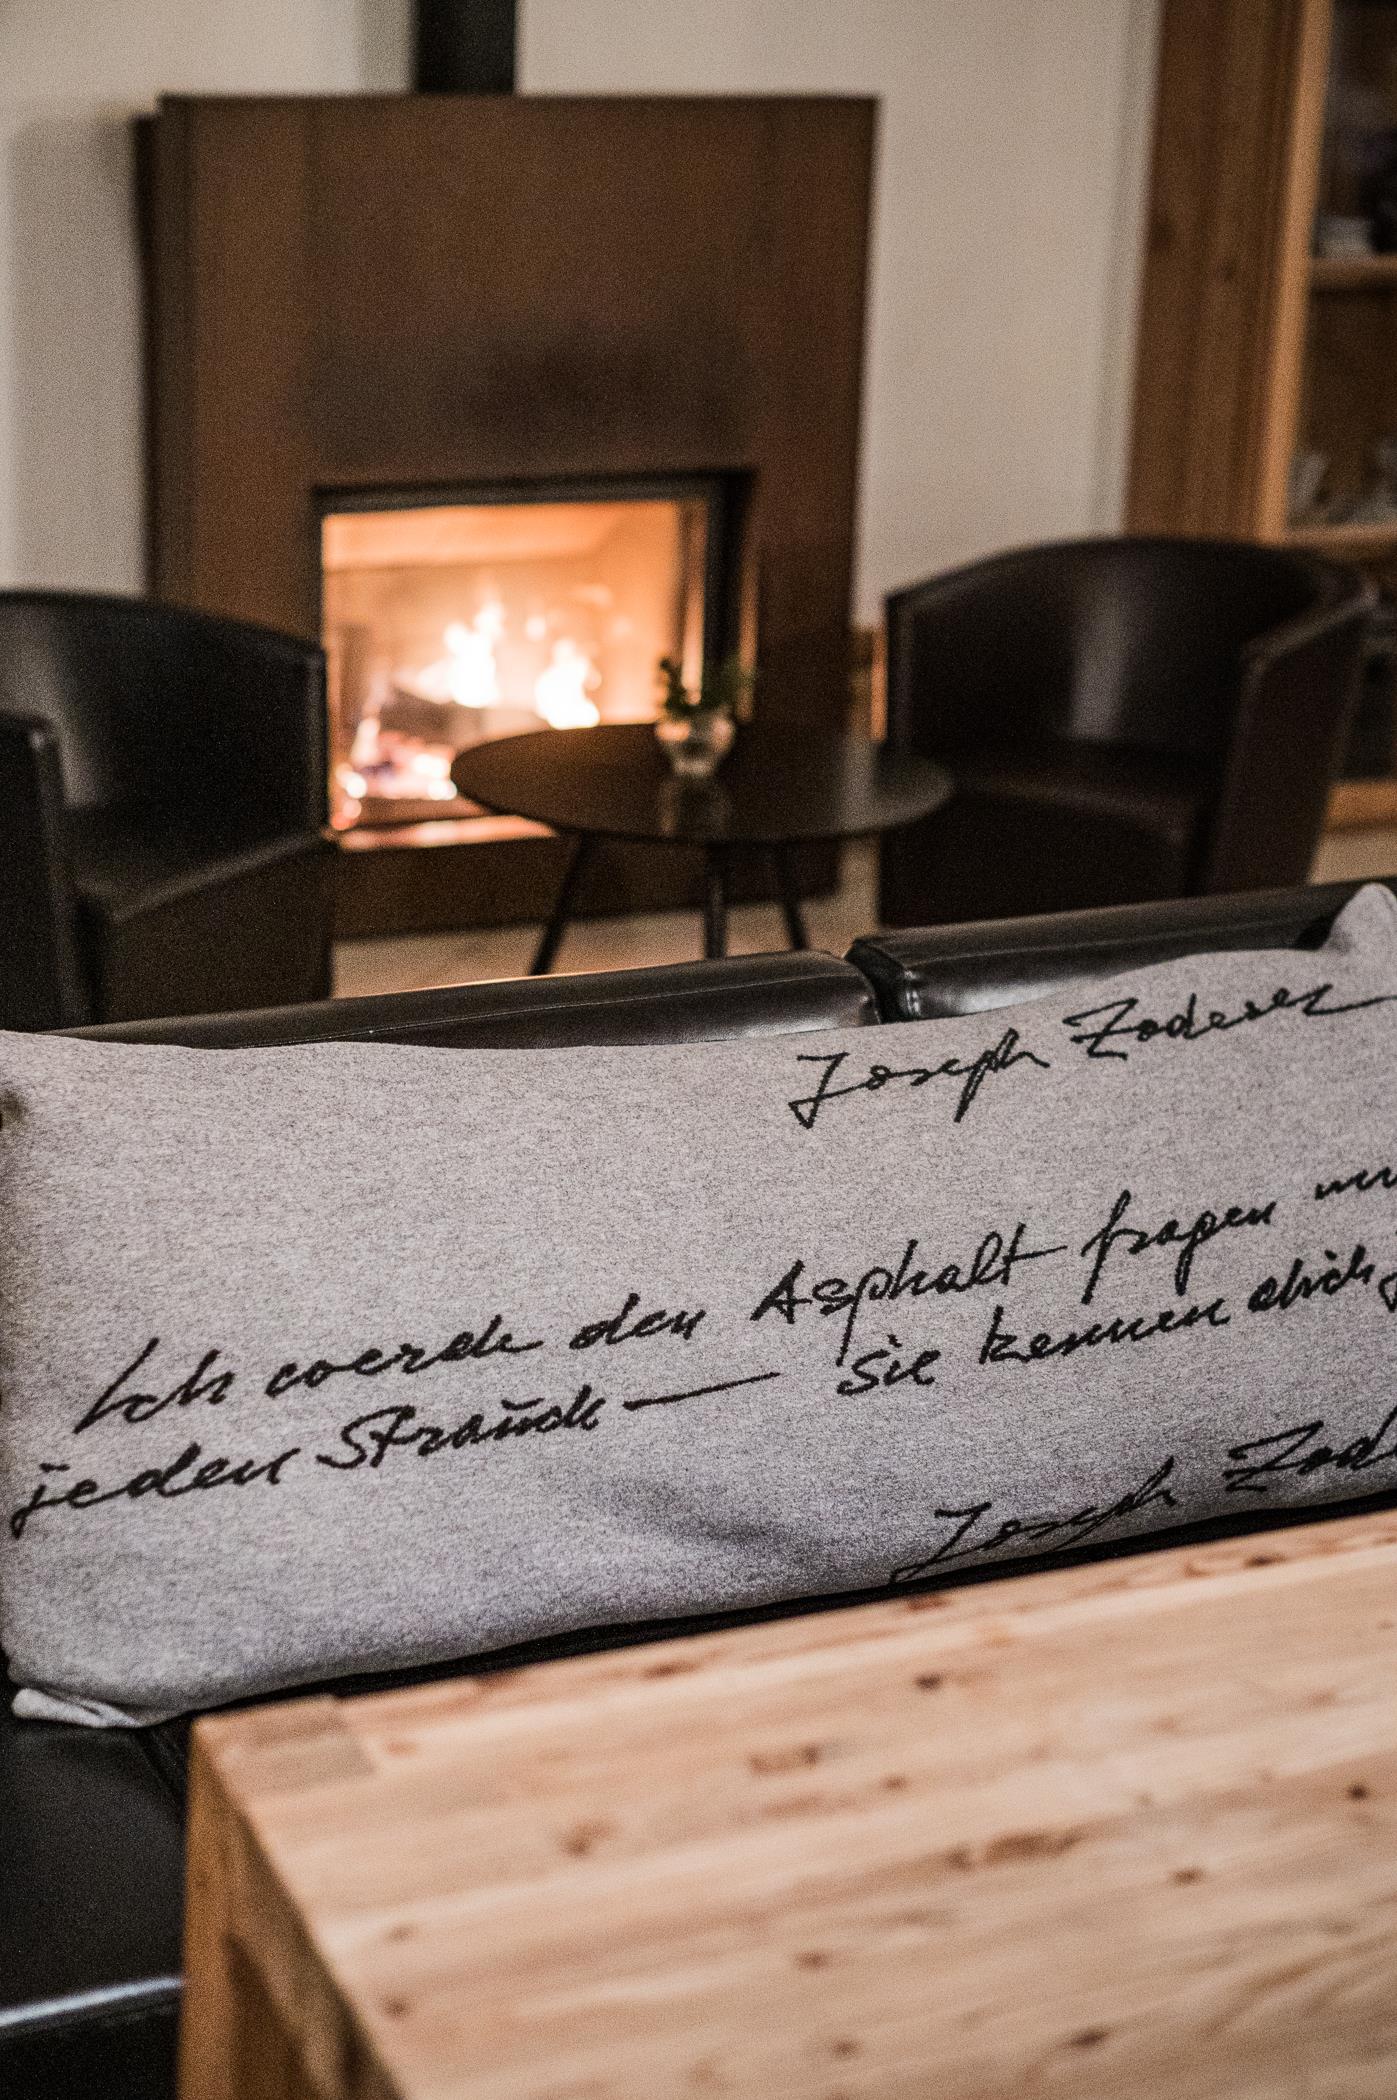 Joseph Zoderer
Ich werde den Asphalt fragen
jeden Strauch — sie kennen dich
Joseph Zod